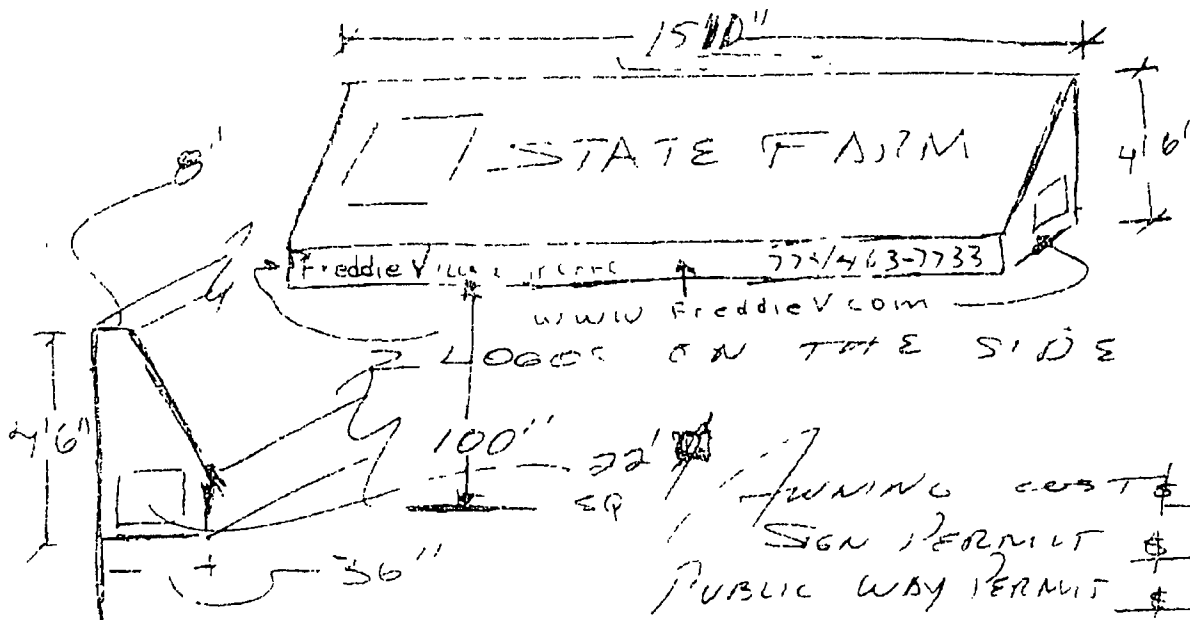 STATE FARM
4'6"
8'
Freddie 773/463-7733
www FreddieV.com
2 LOGOS ON THE SIDE
4'6"
100"
22"
SQ
36"
AWNING COST $
SIGN PERMIT $
PUBLIC WAY PERMIT $